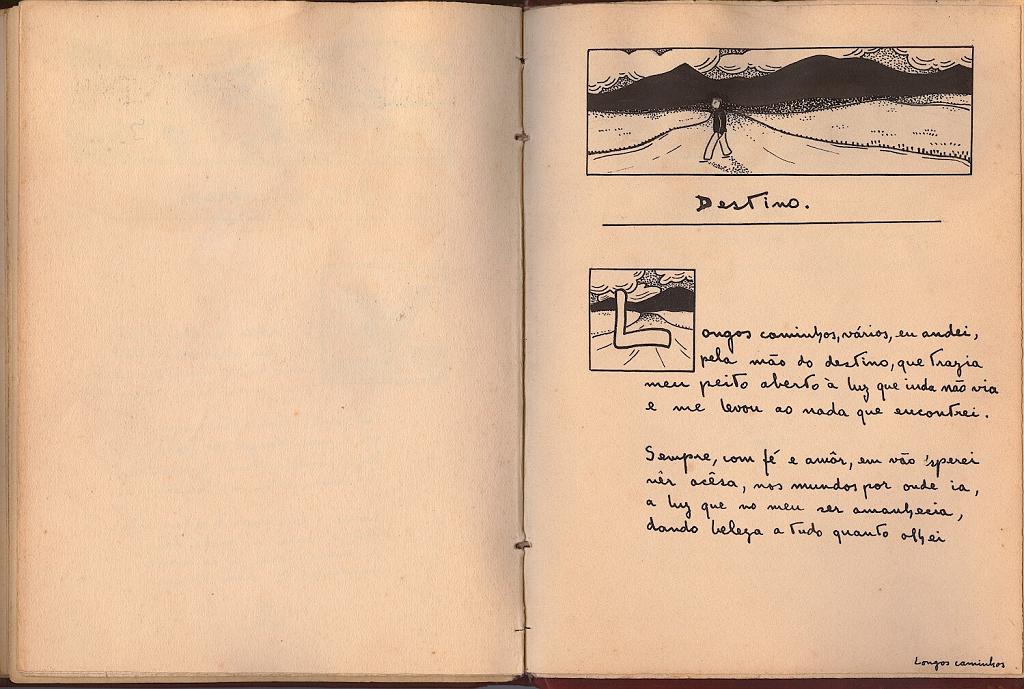 Destino.
Longos caminhos, vários, eu andei,
pela mão do destino, que trazia
meu peito aberto à luz que inda não via
e me levou ao nada que encontrei.
Sempre, com fé e amôr, em vão 'sperei
vêr acêsa, nos mundos por onde ia,
a luz que no meu ser amanhecia,
dando beleza a tudo quanto olhei
Longos caminhos